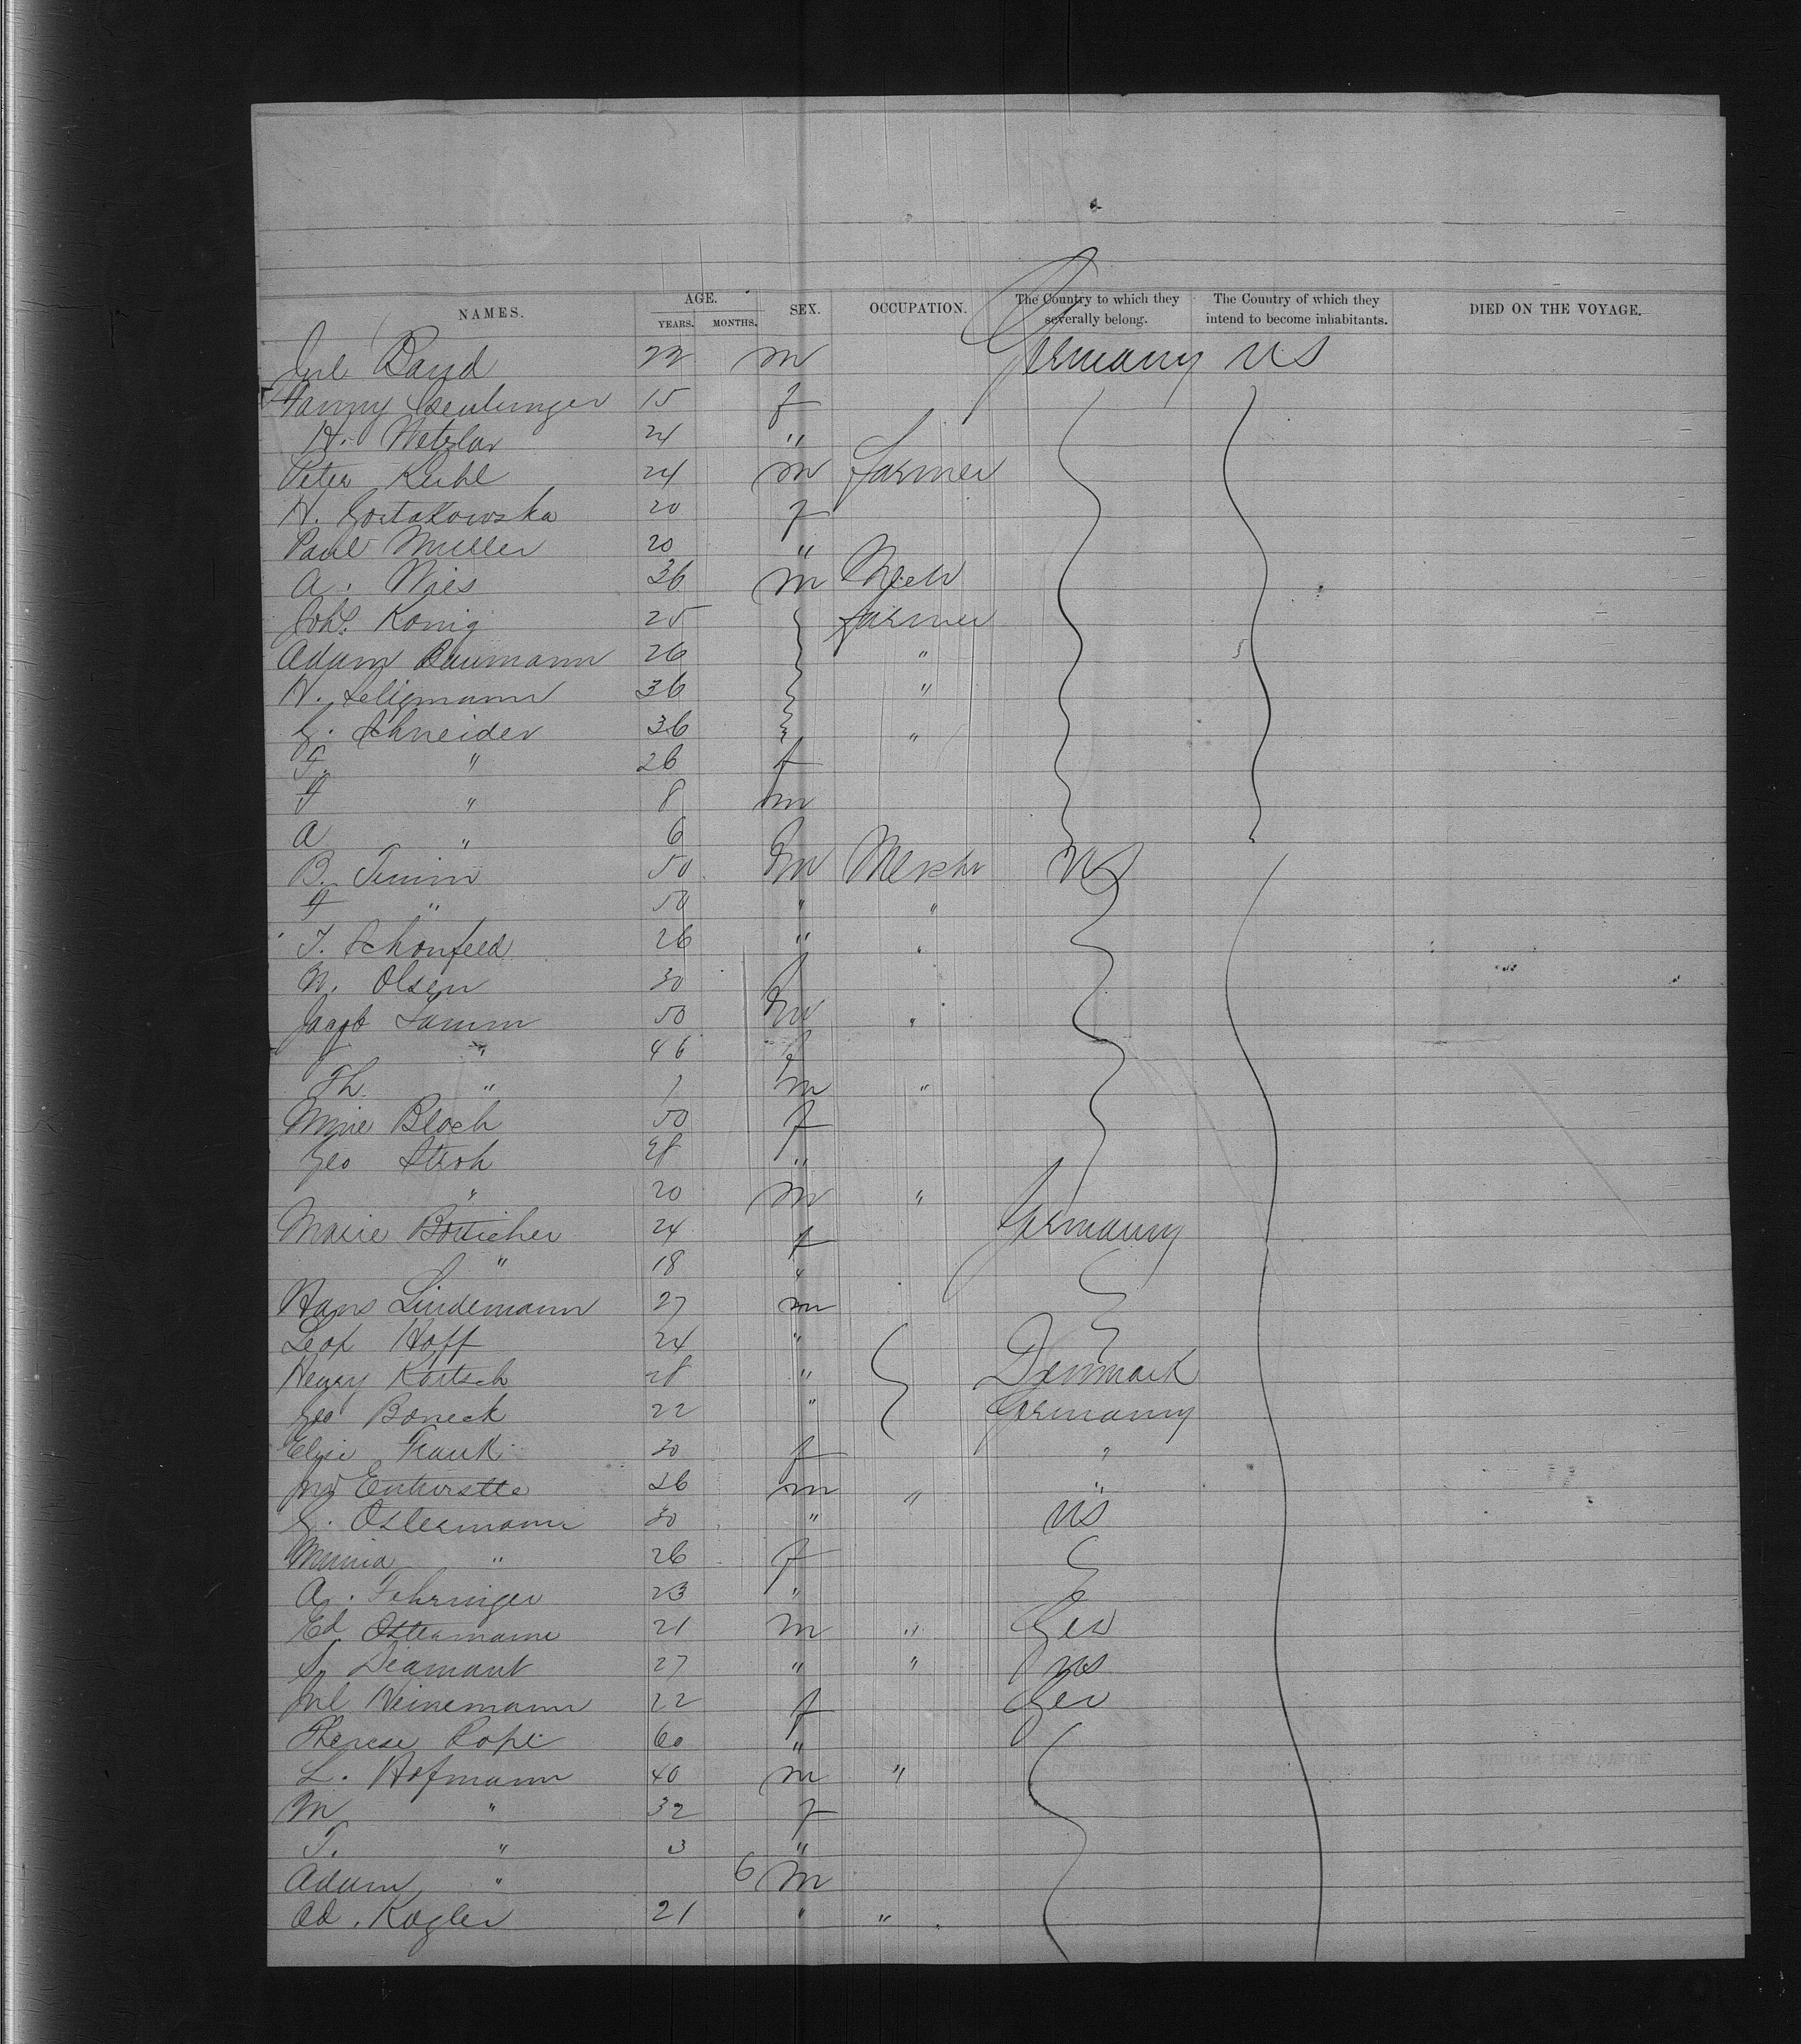 NAMES. AGE. YEARS. MONTHS. SEX. OCCUPATION. The Country to which they severally belong. The Country of which they intend to become inhabitants. DIED ON THE VOYAGE.
Jul Band 22 m Germany US
Fanny 15 f
H. Wetzlar 24 "
Peter Kuhl 24 m farmer
H. Gortatowska 20 f
Paul Muller 20 "
A. Nies 36 m Mech
Johs. Konig 25 farmer
Adam Baumann 26 "
H. Seligmann 36 "
G. Schneider 36 "
F. " 26 f
F " 8 m
A " 6
B. Timm 50 m Mercht US
F " 50 " "
T. Schonfeld 26 " "
N. Olsen 30
Jacob Tamm 50 m "
" 46 f
Th. " 1 m "
Mine Bloch 50 f
Geo Stroh 28 "
" 20 m "
Marie Botticher 24 f Germany
" 18 "
Hans Lindemann 27 m
Leop Hoff 24 "
Henry Kortsch 28 " Denmark
Geo Boneck 22 " Germany
Elise Frank 30 f "
26 m " "
G. Ostermann 30 " US
Minna " 26 f
A. Fehringer 23 "
Ed Ostermann 21 m " Ger
S. Diamant 27 " " US
Jul Heinemann 22 f Ger
Therese 60 "
L. Hofmann 40 m "
M " 32 f
T. " 3 "
Adam " 6 m
Ad. Kogler 21 " "